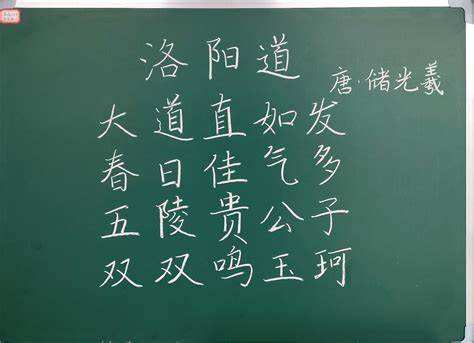 洛阳道
唐·储光羲
大道直如发
春日佳气多
五陵贵公子
双双鸣玉珂